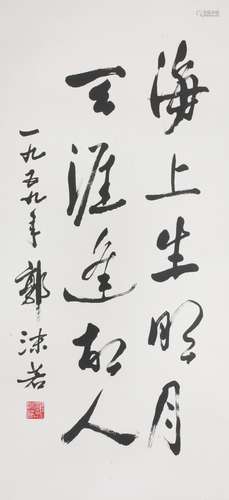 海上生明月
天涯逢故人
一九五九年 郭沫若